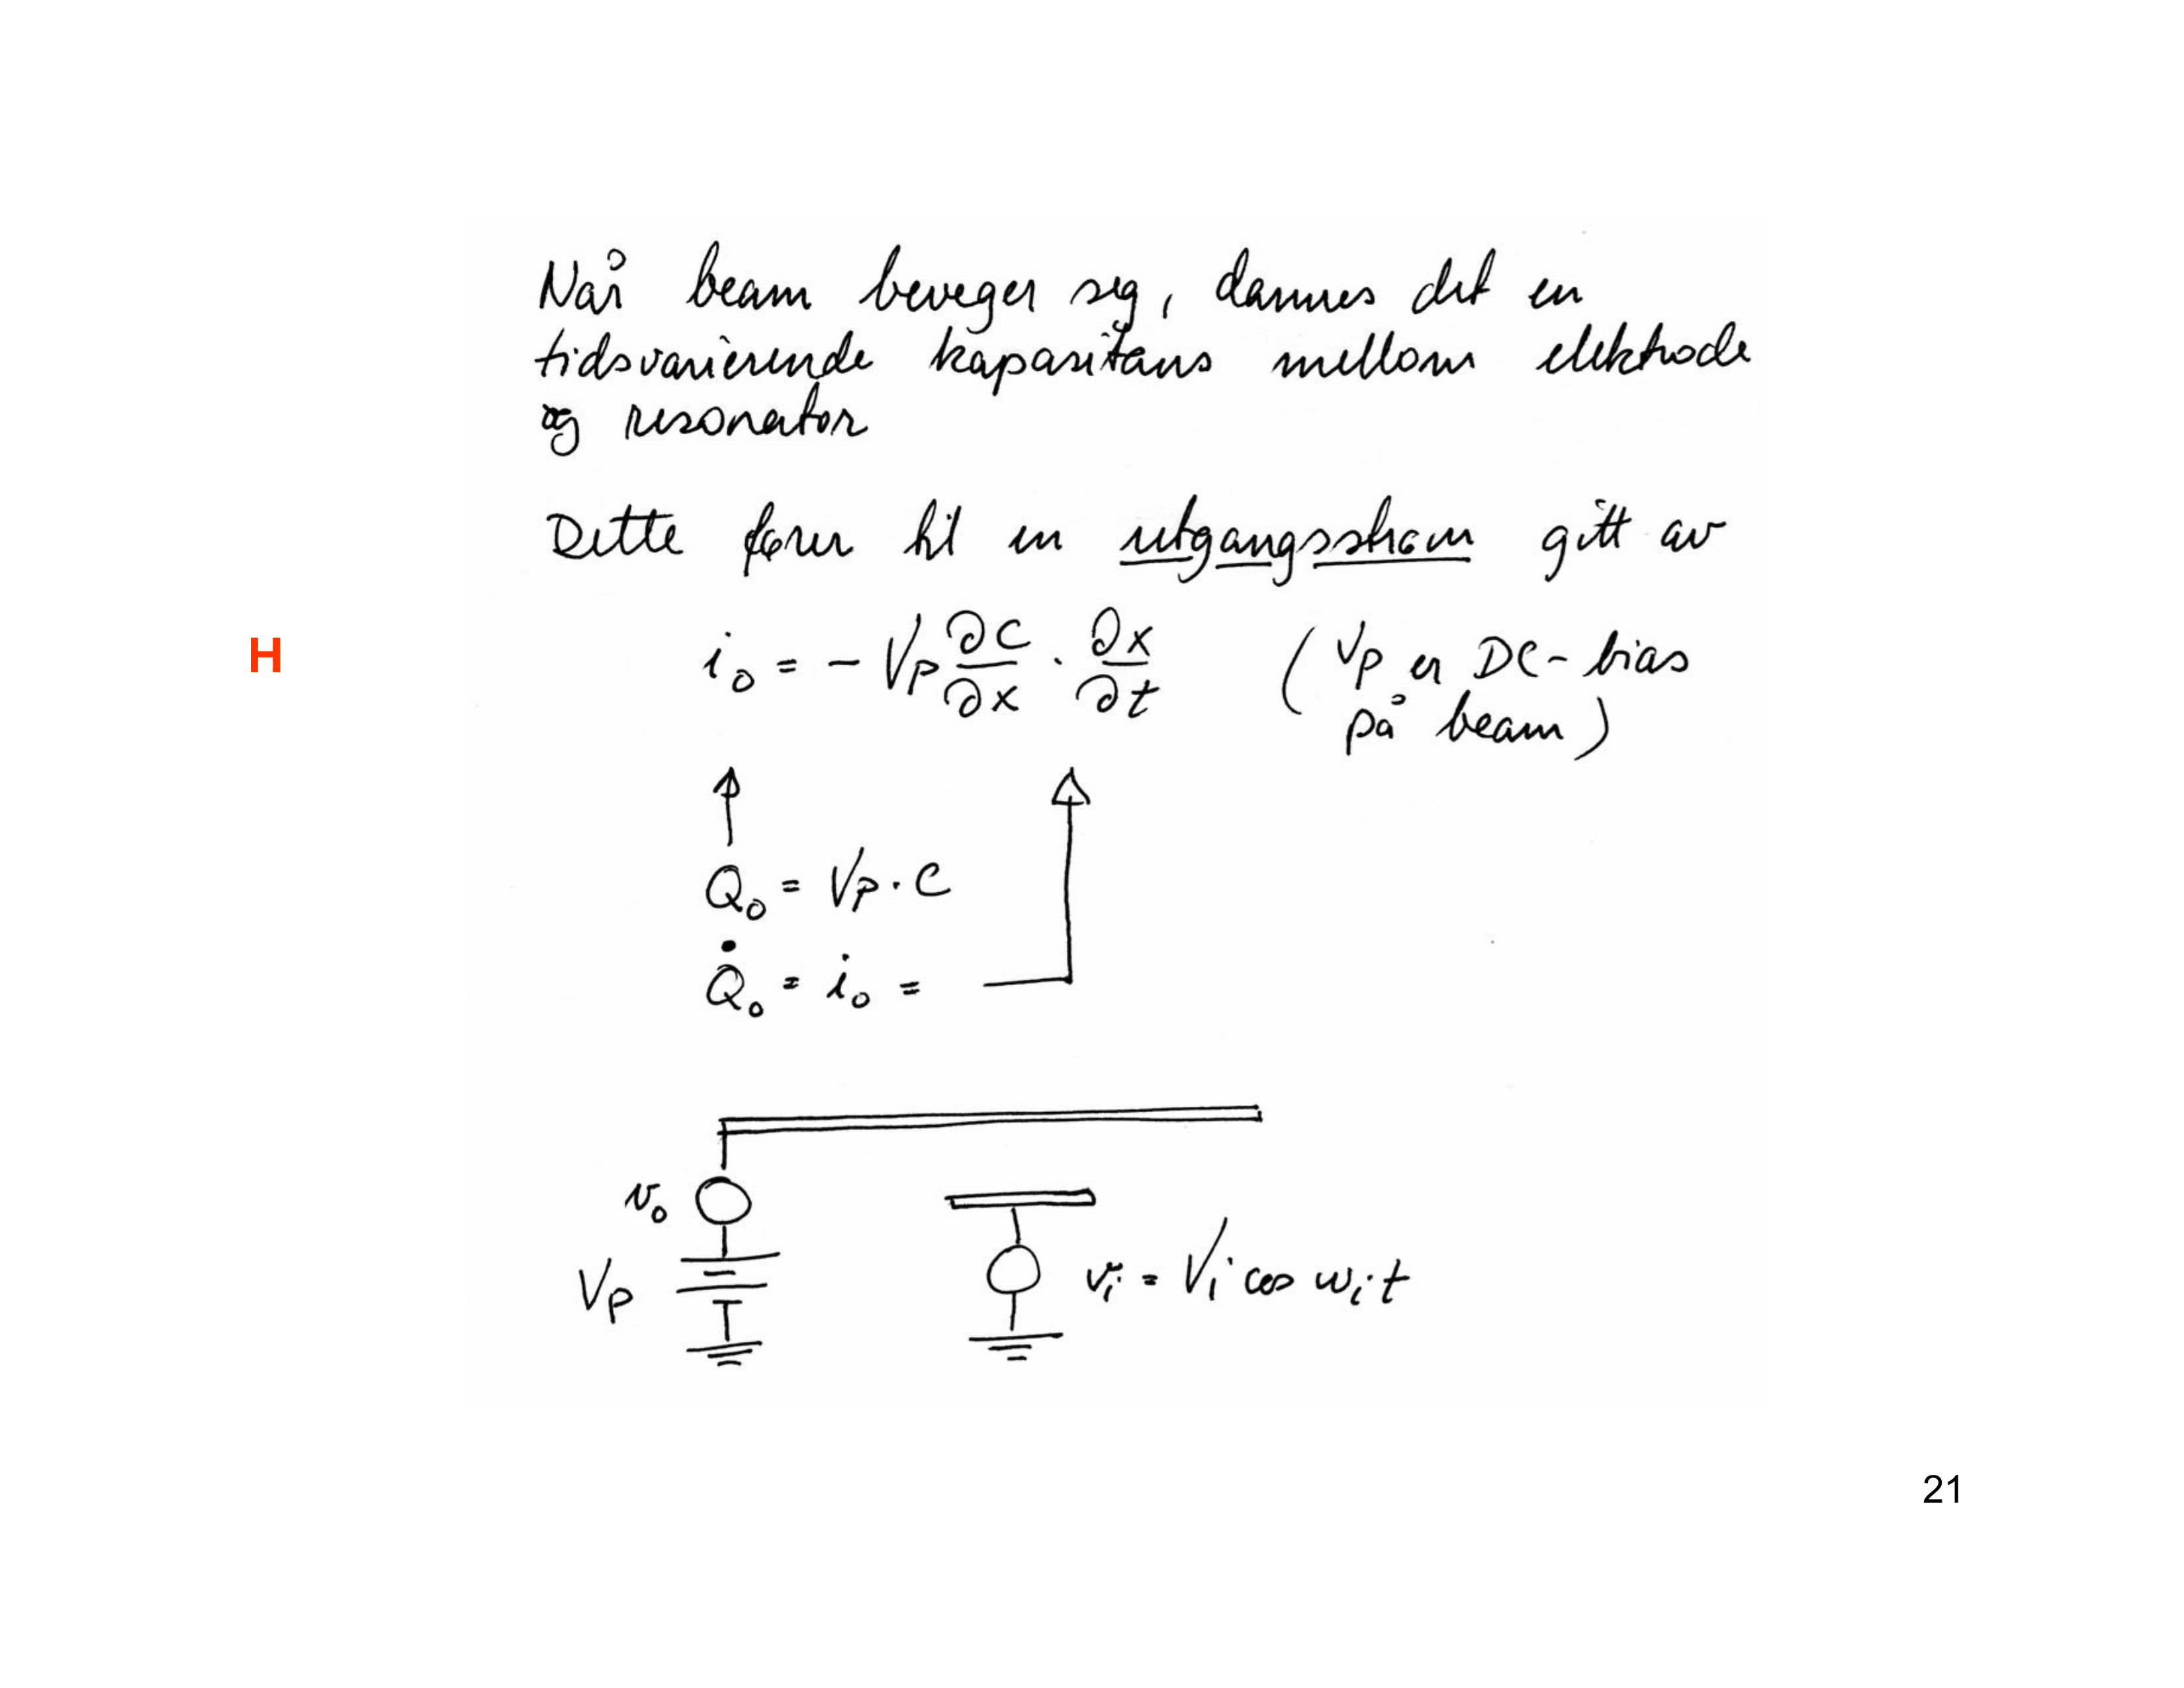 Når beam beveger seg, dannes det en
tidsvarierende kapasitans mellom elektrode
og resonator
Dette fører til en utgangsstrøm gitt av
H
i₀ = - Vp ∂C/∂x · ∂x/∂t (Vp er DC-bias
på beam)
Q₀ = Vp · C
Q̇₀ = i₀ =
v₀
Vp
vᵢ = Vᵢ cos wᵢt
21